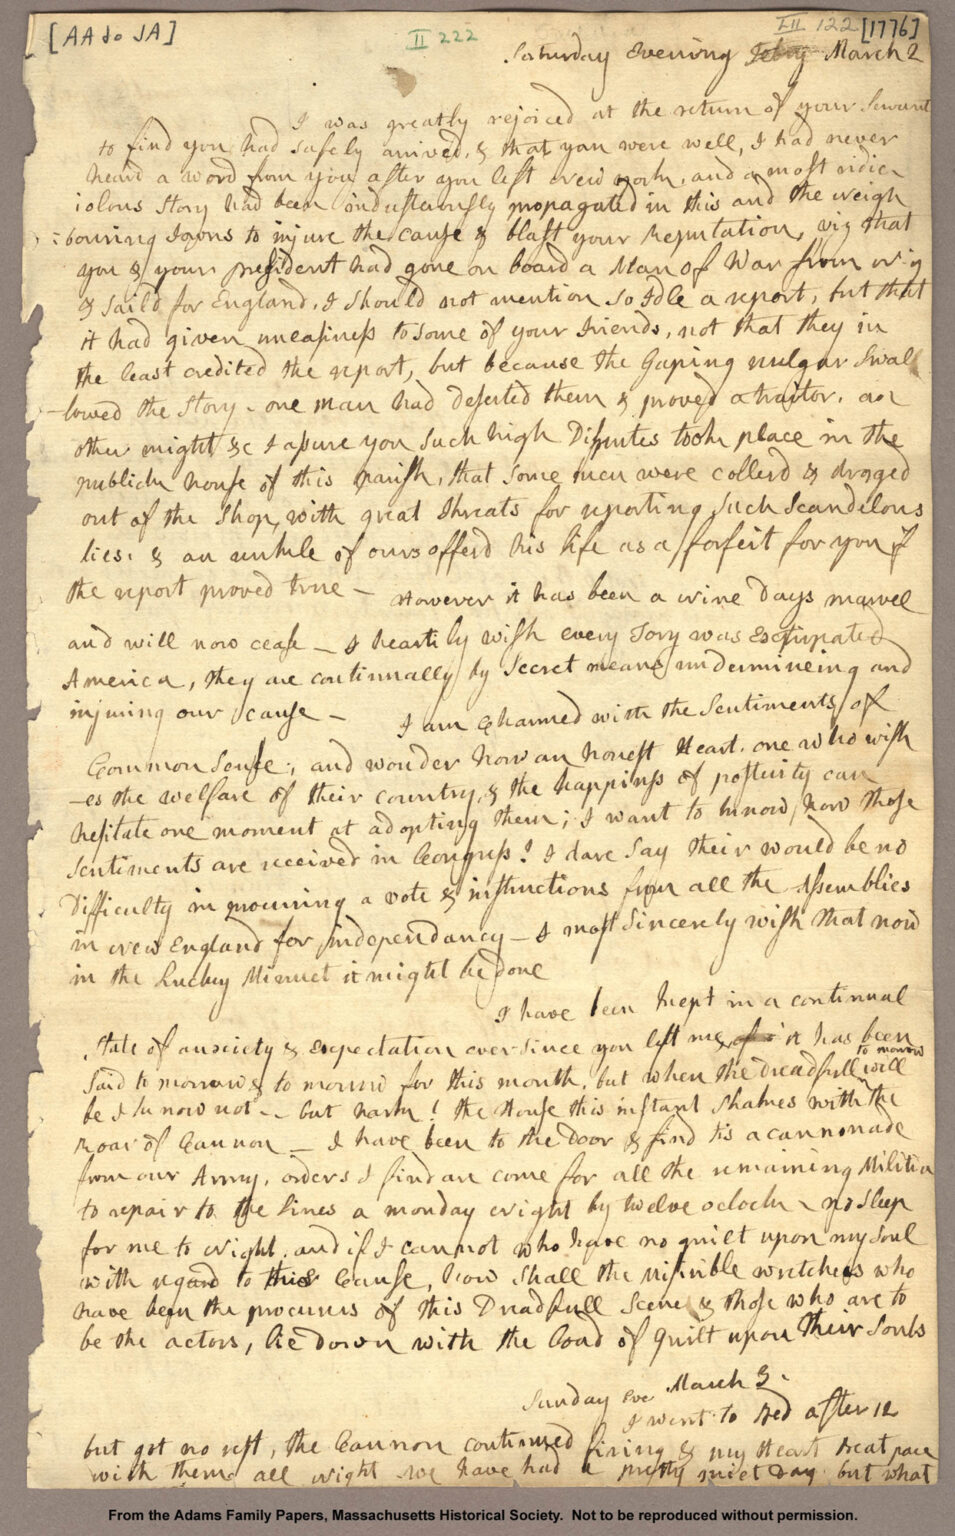 [AA to JA]
II 222
LII 122 [1776]
Saturday Evening Febry March 2
I was greatly rejoiced at the return of your Servant
to find you had safely arrived, & that you were well, I had never
heard a word from you after you left New york, and a most ridic
iolous Story had been industerously propagated in this and the neigh
=bouring Towns to injure the cause & blast your Reputation, viz that
you & your president had gone on board a Man of War from N-y
& saild for England. I should not mention so Idle a report, but that
it had given uneasiness to some of your Friends, not that they in
the least credited the report, but because the Gaping vulgar swal
-lowed the story. one man had deserted them & proved a traitor, an
other might &c I assure you such high Disputes took place in the
publick House of this parish, that some men were collerd & dragged
out of the Shop, with great Threats for reporting such Scandelous
lies. & an unkle of ours offerd his life as a forfeit for you if
the report proved true – However it has been a nine Days marvel
and will now cease – I heartily wish every Tory was Extirpated
America, they are continually by Secret means undermineing and
injuring our cause – I am charmed with the Sentiments of
Common Sense; and wonder how an honest Heart, one who wish
-es the welfare of their country, & the happiness of posterity can
hesitate one moment at adopting them; I want to know how those
Sentiments are received in Congress? I dare say their would be no
Difficulty in procuring a vote & instructions from all the Assemblies
in New England for independancy – I most Sincerely wish that now
in the Lucky Minuet it might be done
I have been kept in a continual
State of anxiety & expectation ever since you left me, it has been
to morrow
said to morrow & to morrow for this month, but when the dreadfull will
be I know not – but hark! the House this instant shakes with the
Roar of Cannon – I have been to the Door & find tis a cannonade
from our Army, orders I find are come for all the remaining Militia
to repair to the Lines a monday Night by twelve oclock – no Sleep
for me to Night. and if I cannot who have no guilt upon my Soul
with regard to this Cause, how shall the misirible wretches who
have been the procurers of this Dreadfull Scene & those who are to
be the actors, lie down with the load of Guilt upon their Souls
Sunday Eve March 3.
I went to Bed after 12
but got no rest, the Cannon continued firing & my Heart Beat pace
with them all night we have had a pretty quiet Day but what
From the Adams Family Papers, Massachusetts Historical Society. Not to be reproduced without permission.